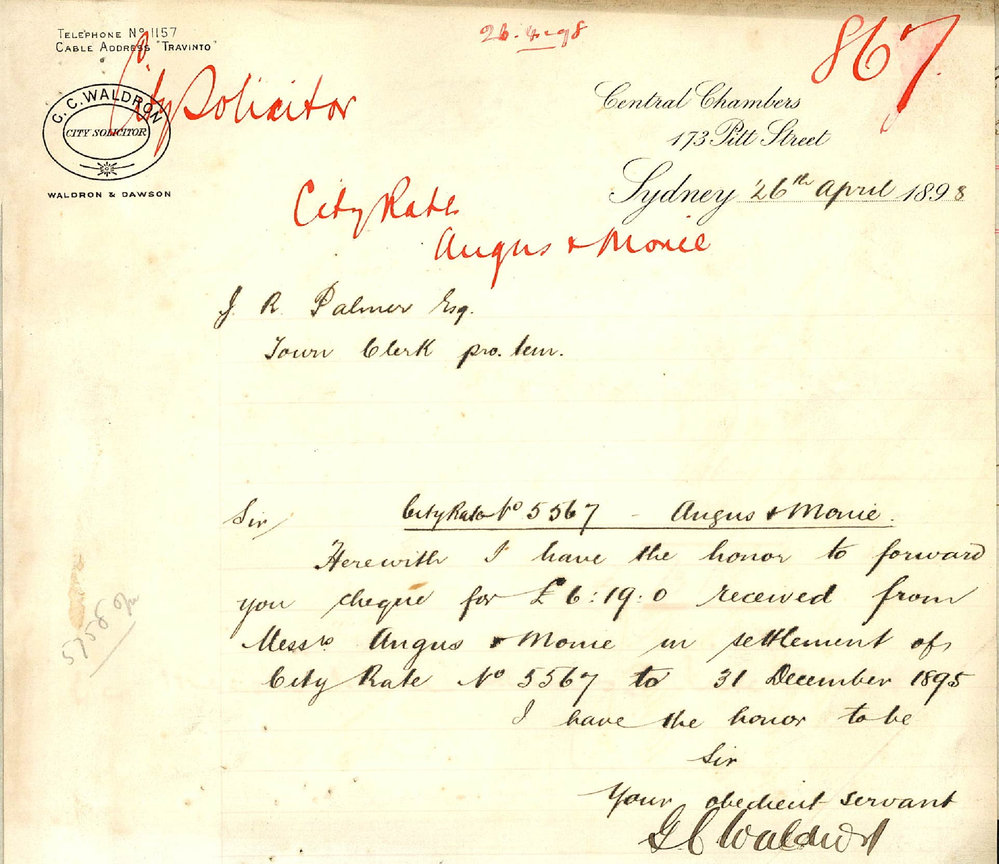 TELEPHONE No 1157
CABLE ADDRESS "TRAVINTO"
26.4.98
867
City Solicitor
C. C. WALDRON
CITY SOLICITOR
WALDRON & DAWSON
Central Chambers
173 Pitt Street
Sydney 26th April 1898
City Rate
Angus & Monie
J. R. Palmer Esq.
Town Clerk pro. tem.
Sir
City Rate No 5567 - Angus & Monie.
Herewith I have the honor to forward
you cheque for £6:19:0 received from
Messrs Angus & Monie in settlement of
City Rate No 5567 to 31 December 1895
I have the honor to be
Sir
Your obedient servant
Waldron